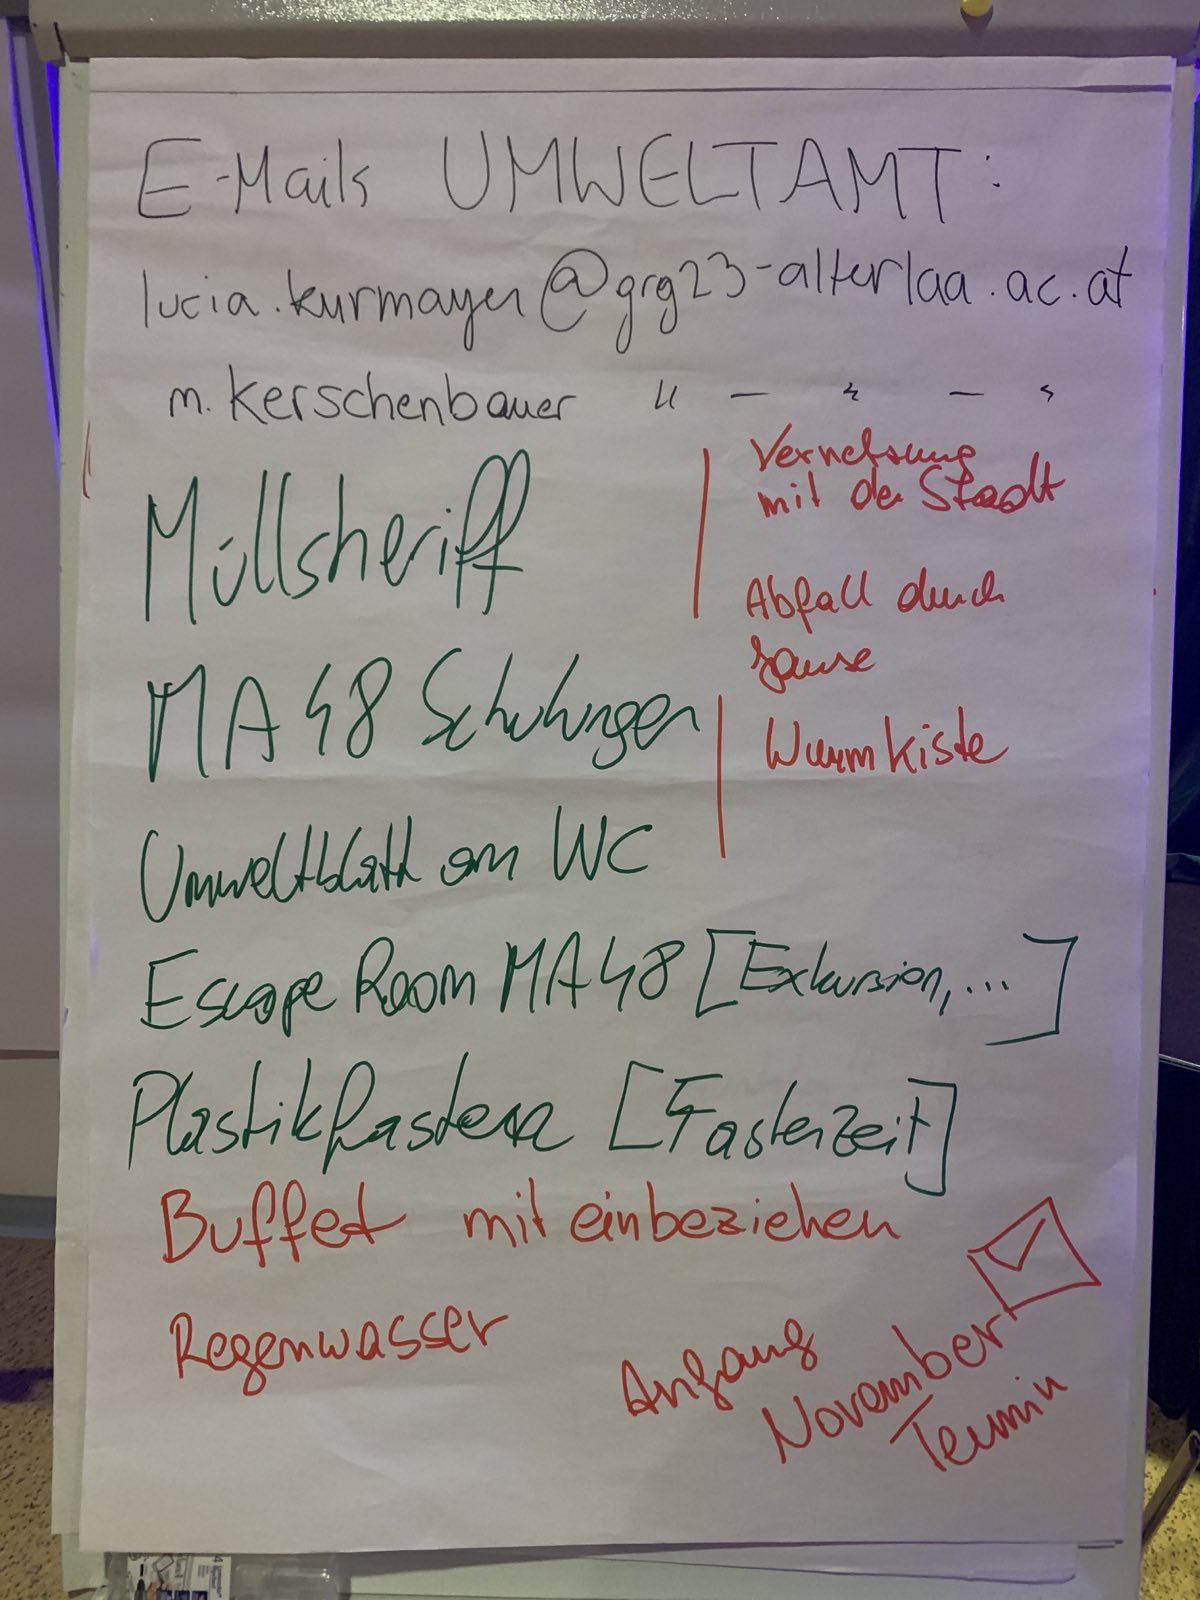 E-Mails UMWELTAMT:
lucia.kurmayer@grg23-alterlaa.ac.at
m. kerschenbauer " — " — "
Müllsheriff
Vernetzung
mit der Stadt
Abfall durch
Jause
MA 48 Schulungen
Wurmkiste
Umweltblatt am WC
Escape Room MA 48 [Exkursion, ...]
Plastikfasten [Fastenzeit]
Buffet mit einbeziehen
Regenwasser
Anfang
November
Termin